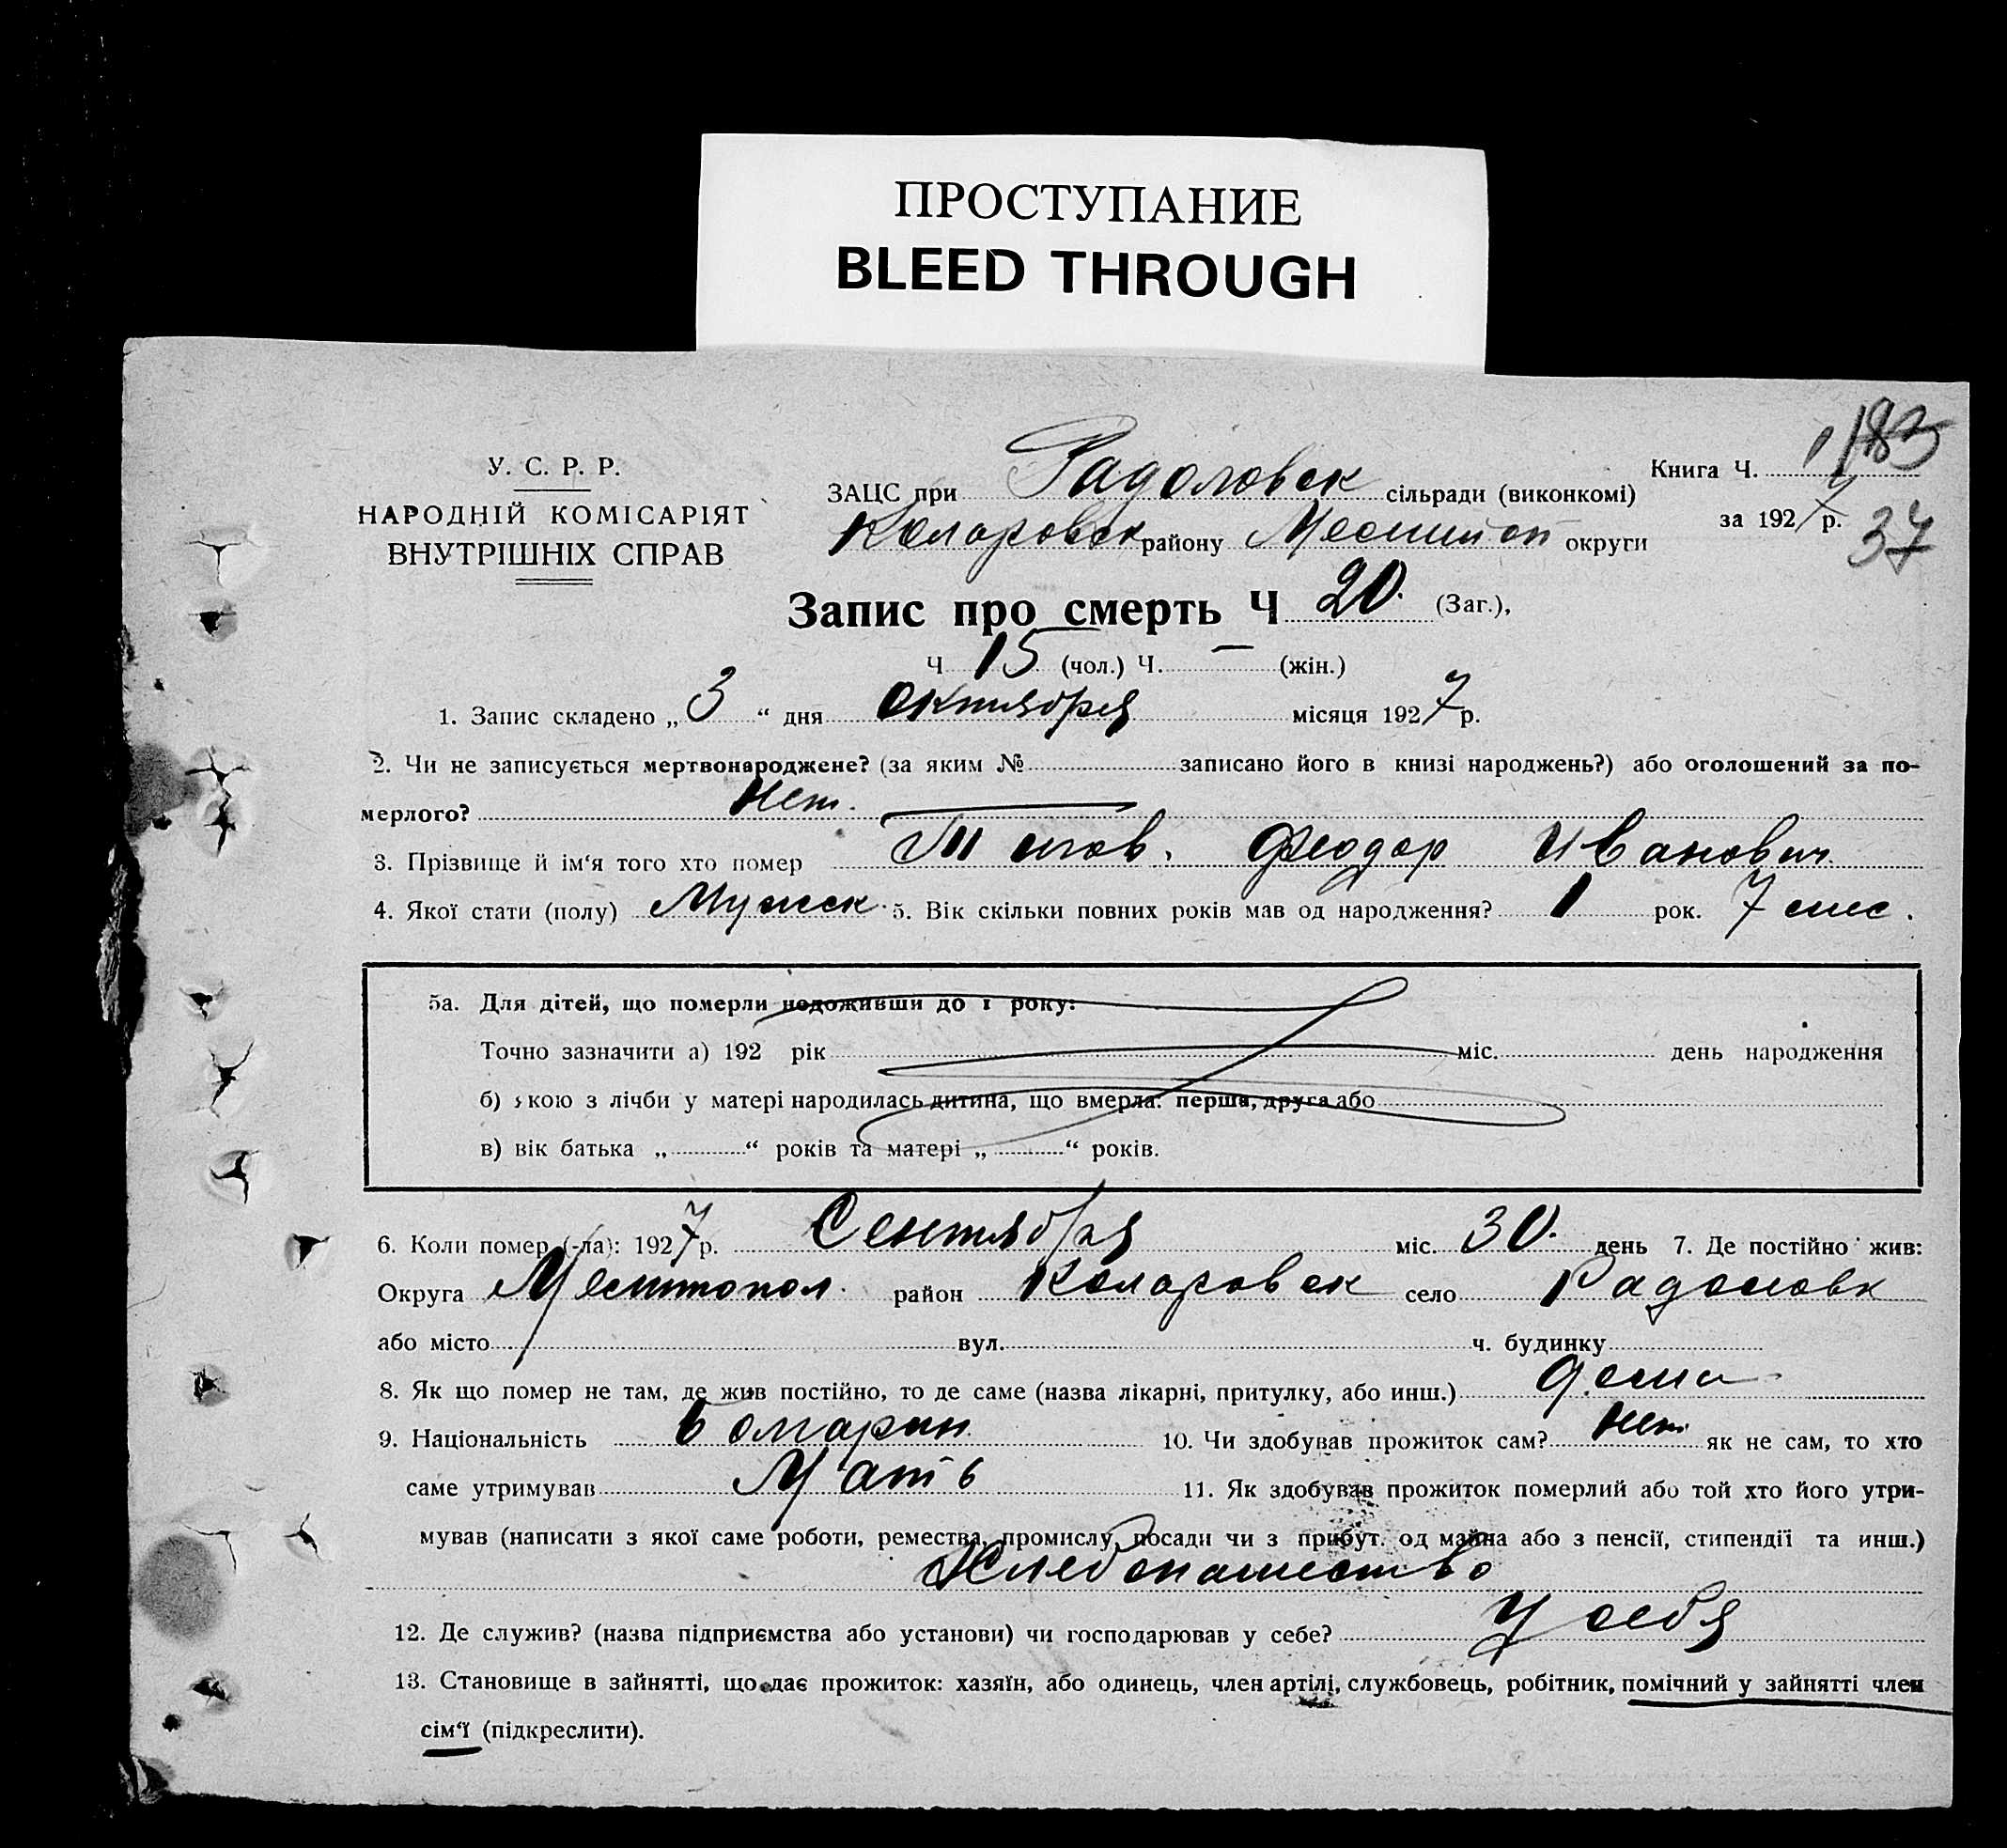 ПРОСТУПАНИЕ
BLEED THROUGH
У. С. Р. Р.
НАРОДНІЙ КОМІСАРІЯТ
ВНУТРІШНІХ СПРАВ
Книга Ч. 1 183
ЗАЦС при Радоловск сільради (виконкомі)
за 1927 р. 37
Коларовск району Мелитоп округи
Запис про смерть Ч 20. (Заг.),
Ч 15 (чол.) Ч. — (жін.)
1. Запис складено „ 3 “ дня октября місяця 1927 р.
2. Чи не записується мертвонароджене? (за яким № записано його в книзі народжень?) або оголошений за по-
мерлого? Нет.
3. Прізвище й ім‘я того хто помер Титов. Феодор Иванович
4. Якої стати (полу) Мужск. 5. Вік скільки повних років мав од народження? 1 рок. 7 мес.
5а. Для дітей, що померли недоживши до 1 року:
Точно зазначити а) 192 рік міс. день народження
б) якою з лічби у матері народилась дитина, що вмерла: перша, друга або
в) вік батька „ “ років та матері „ “ років.
6. Коли помер (-ла): 1927 р. Сентября міс. 30. день 7. Де постійно жив:
Округа Мелитопол. район Коларовск село Радоловк
або місто вул. ч. будинку
8. Як що помер не там, де жив постійно, то де саме (назва лікарні, притулку, або инш.) дома
9. Національність Болгарин. 10. Чи здобував прожиток сам? Нет як не сам, то хто
саме утримував Мать 11. Як здобував прожиток померлий або той хто його утри-
мував (написати з якої саме роботи, ремества, промислу, посади чи з прибут. од майна або з пенсії, стипендії та инш.)
Хлебопашество
12. Де служив? (назва підприємства або установи) чи господарював у себе? У себя
13. Становище в зайнятті, що дає прожиток: хазяїн, або одинець, член артілі, службовець, робітник, помічний у зайнятті член
сім‘ї (підкреслити).